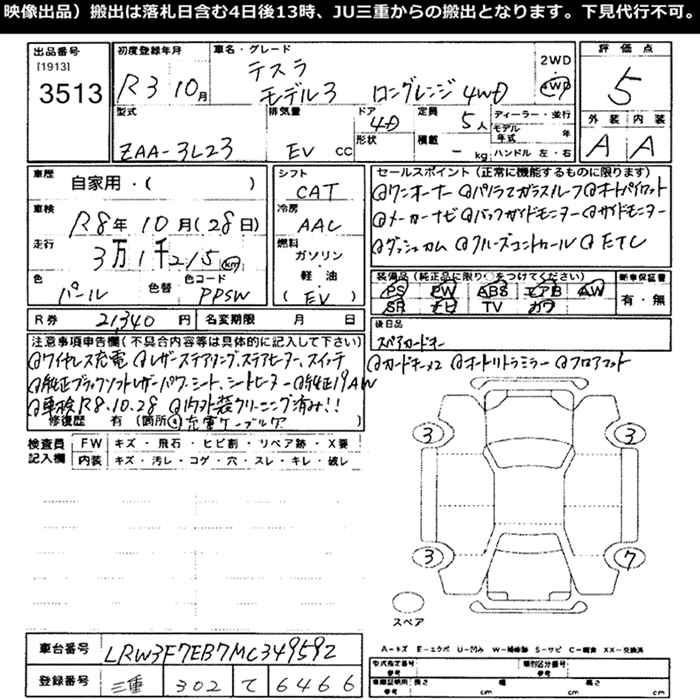 映像出品）搬出は落札日含む4日後13時、JU三重からの搬出となります。下見代行不可。
出品番号
[1913]
3513
初度登録年月
R3 10月
車名・グレード
テスラ
モデル3 ロングレンジ 4WD
2WD
4WD
評価点
5
外装 内装
A A
型式
ZAA-3L23
排気量
EV cc
ドア
4D
形状
定員
5人
積載
- kg
ディーラー・並行
モデル年式 年
ハンドル 左・右
車歴
自家用・( )
車検
R8年10月(28日)
走行
3万1千215km
色
パール
色替
色コード
PPSW
シフト
CAT
冷房
AAC
燃料
ガソリン・軽油・(EV)
セールスポイント（正常に機能するものに限ります）
@ワンオーナー @パノラマガラスルーフ @オートパイロット
@メーカーナビ @バックガイドモニター @サイドモニター
@ダッシュカム @クルーズコントロール @ETC
装備品（純正品に限り○をつけてください）
PS PW ABS エアB AW
SR ナビ TV カワ
新車保証書
有・無
R券 21,340円
名変期限 月 日
後日品
スペアカードキー
注意事項申告欄（不具合内容等は具体的に記入して下さい）
@ワイヤレス充電 @レザーステアリング、ステアヒーター、スイッチ
@カードキー×2 @オートリトラミラー @フロアマット
@純正ブラックソフトレザーパワーシート、シートヒーター @純正19AW
@車検R8.10.28 @内外装クリーニング済み!!
修復歴 有 (箇所 @充電ケーブル
検査員記入欄
FW キズ・飛石・ヒビ割・リペア跡・X要
内装 キズ・汚レ・コゲ・穴・スレ・キレ・破レ
3
3
3
7
スペア
A－キズ E－エクボ U－凹み W－補修跡 S－サビ C－腐食 XX－交換済
車台番号
LRW3F7EB7MC349592
登録番号
三重 302 て 6466
型式指定番号
参考
類別区分番号
参考
車庫証明用
参考
長さ cm
幅 cm
高さ cm